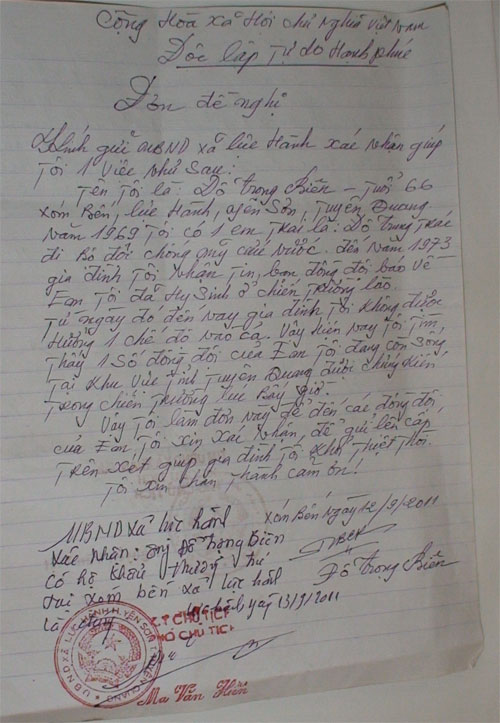 Cộng Hòa xã Hội chủ Nghĩa Việt Nam
Độc lập Tự do Hạnh phúc
Đơn đề nghị
Kính gửi UBND xã lực Hành xác nhận giúp
Tôi 1 việc như sau:
Tên Tôi là: Đỗ trọng Biên - Tuổi 66
xóm Bến, lực Hành, yên Sơn, Tuyên Quang
Năm 1969 Tôi có 1 em trai là: Đỗ trung
đi Bộ đội chống mỹ cứu Nước. đến Năm 1973
gia đình Tôi Nhận Tin, bạn đồng đội báo về
Em Tôi đã Hy Sinh ở chiến trường lào.
Từ ngày đó đến nay gia đình Tôi không được
Hưởng 1 chế độ nào cả. Vậy Hiện nay Tôi Tìm
Thấy 1 Số đồng đội của Em Tôi đang còn Sống
Tại khu vực Tỉnh Tuyên Quang được chứng kiến
Trong chiến Trường lúc Bấy giờ
Vậy Tôi làm đơn này để đến các đồng đội
của Em Tôi xin xác Nhận, để gửi lên cấp
Trên xét giúp gia đình Tôi khỏi Thiệt Thòi
Tôi xin chân Thành cảm ơn!
UBND xã lực hành
xác nhận: ông Đỗ trọng Biên
có hộ khẩu thường trú
tại xóm bến xã lực hành
là đúng
xóm Bến Ngày 12/9/2011
Đỗ trọng Biên
lực hành ngày 13/9/2011
K.T CHỦ TỊCH
PHÓ CHỦ TỊCH
U.B.N.D XÃ LỰC HÀNH H.YÊN SƠN T.TUYÊN QUANG
Ma Văn Hiến